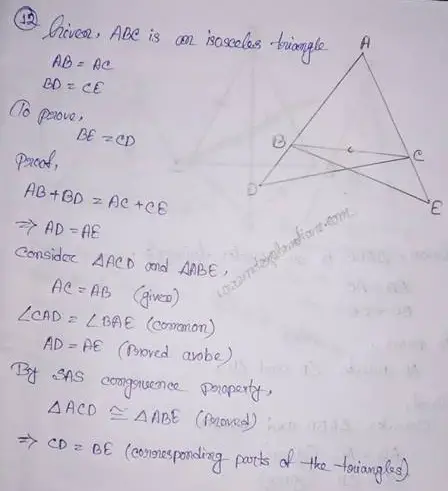 12 Given, ABC is an isosceles triangle
AB = AC
BD = CE
To prove,
BE = CD
Proof,
AB + BD = AC + CE
⇒ AD = AE
Consider ΔACD and ΔABE,
AC = AB (given)
∠CAD = ∠BAE (common)
AD = AE (Proved avobe)
By SAS congruence property,
ΔACD ≅ ΔABE (Proved)
⇒ CD = BE (corresponding parts of the triangles)
A
B
C
D
E